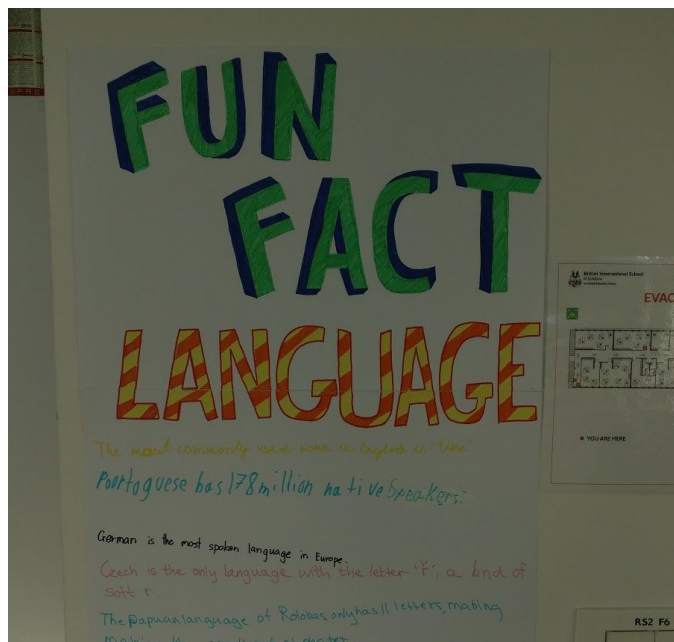 FUN
FACT
LANGUAGE
The most commonly used noun in English is "time"
Poortoguese has 178 million native speakers.
German is the most spoken language in Europe.
Czech is the only language with the letter 'ř', a kind of
soft r.
The Papuan language of Rotobas only has 11 letters, making
British International School
EVAC
YOU ARE HERE
RS2 F6